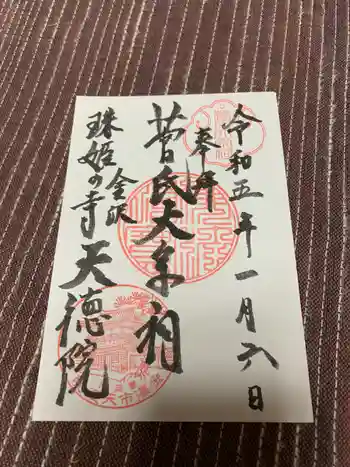 令和五年一月六日
奉拝
曹氏大乗相
金沢
珠姫の寺
天徳院